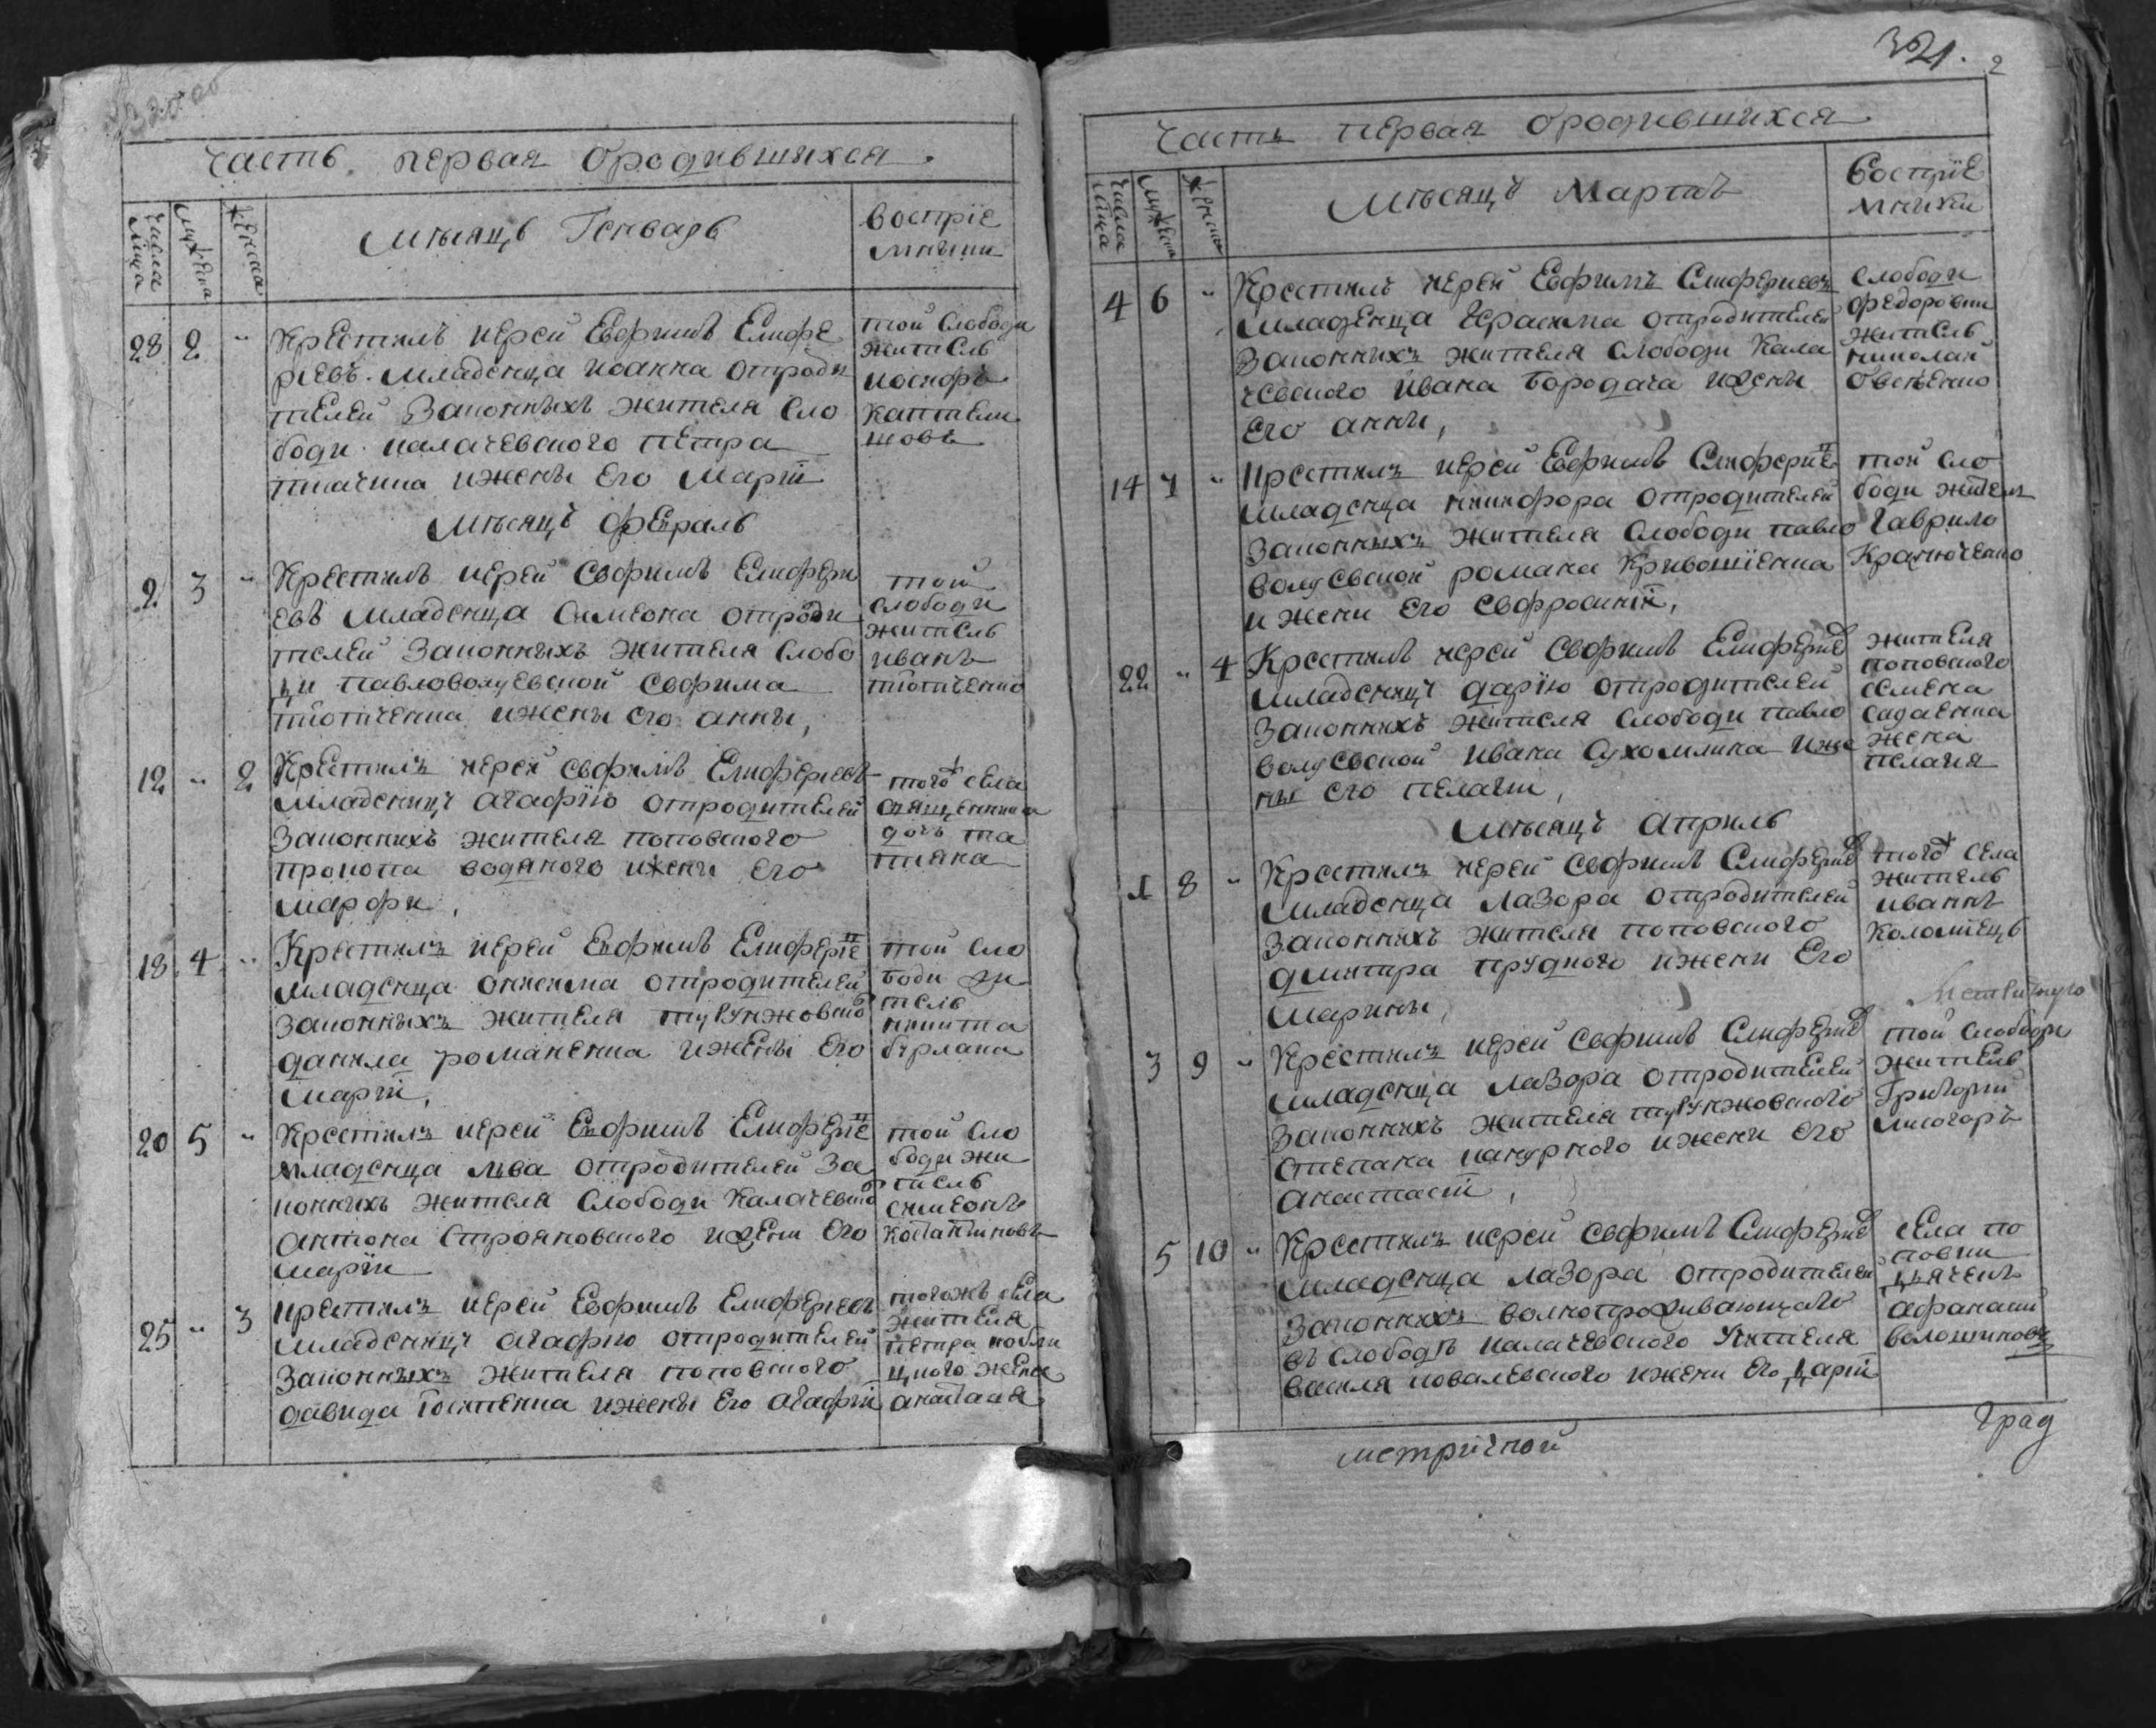 321.
2
часть первая ородившихся.
числа мсца
мужеска
женска
мѣсяцъ Генварь
воспріе
мники
28 2 "
Крестилъ иерей Евфимъ Елифе
риевъ младенца иоанна отроди
телей законныхъ жителя сло
боди калачевского петра
ткачика ижены его Маріи
той слободи
житель
иосифъ
мѣсяцъ февраль
2 3 "
Крестилъ иерей евфимъ Елифери
евъ младенца симеона отроди
телей законныхъ жителя слобо
ди павловолуевской евфима
ижены его анны,
той
слободи
житель
иванъ
12 " 2
Крестилъ иерей евфимъ Елифериевъ
младеницу агафію отродителей
законныхъ жителя поповского
прокопа водяного ижени его
марфи,
тогож села
священника
дочь та
тияна
18 4 "
Крестилъ иерей Евфимъ Елиферіе
младенца онисима отродителей
законныхъ жителя
данила романенка ижены его
маріи,
той сло
боди жи
тель
никита
бурлака
20 5 "
Крестилъ иерей Евфимъ Елиферіе
младенца лва отродителей за
конныхъ жителя слободи калачевско
антона строяновского ижени его
маріи
той сло
боди жи
тель
симеонъ
костантиновъ
25 " 3
крестилъ иерей Евфимъ Елифериевъ
младеницу агафию отродителей
законныхъ жителя поповского
давида Гостенка ижены его агафіи
тогожъ села
жителя
петра
жена
анастасия
часть первая ородившихся
числа мсца
мужеска
женска
мѣсяцъ Мартъ
Воспріе
мники
4 6 "
Крестилъ иерей Евфимъ Елифериевъ
младенца Герасима отродителей
законныхъ жителя слободи кала
чевского ивана бородача ижени
его анни,
слободи
федоровки
житель
николай
овсеенко
14 7 "
Крестилъ иерей Евфимъ Елиферие
младенца никифора отродителей
законныхъ жителя слободи павло
волуевской романа кривошіенка
и жени его евфросиніи,
той сло
боди житель
Гаврило
Кранюченко
22 " 4
Крестилъ иерей евфимъ Елиферие
младеницу дарію отродителей
законныхъ жителя слободи павло
волуевской ивана сухомлина иже
ны его пелагіи,
жителя
поповского
семена
садаенка
жена
пелагия
мѣсяцъ априль
1 8 "
Крестилъ иерей евфимъ Елиферие
младенца лазора отродителей
законныхъ жителя поповского
дмитра прудкого ижени его
марины,
тогож села
житель
иванъ
коломіецъ
3 9 "
Крестилъ иерей евфимъ Елиферие
младенца лазора отродителей
законныхъ жителя
степана ижени его
анастасіи,
той слободи
житель
Григорій
лисогоръ
5 10 "
Крестилъ иерей евфимъ Елиферие
младенца лазора отродителей
законныхъ волнопроживающаго
въ слободѣ калачевского жителя
василя ковалевского ижени его даріи
села по
повки
дяченъ
афанасий
волошиновъ
метричной
град